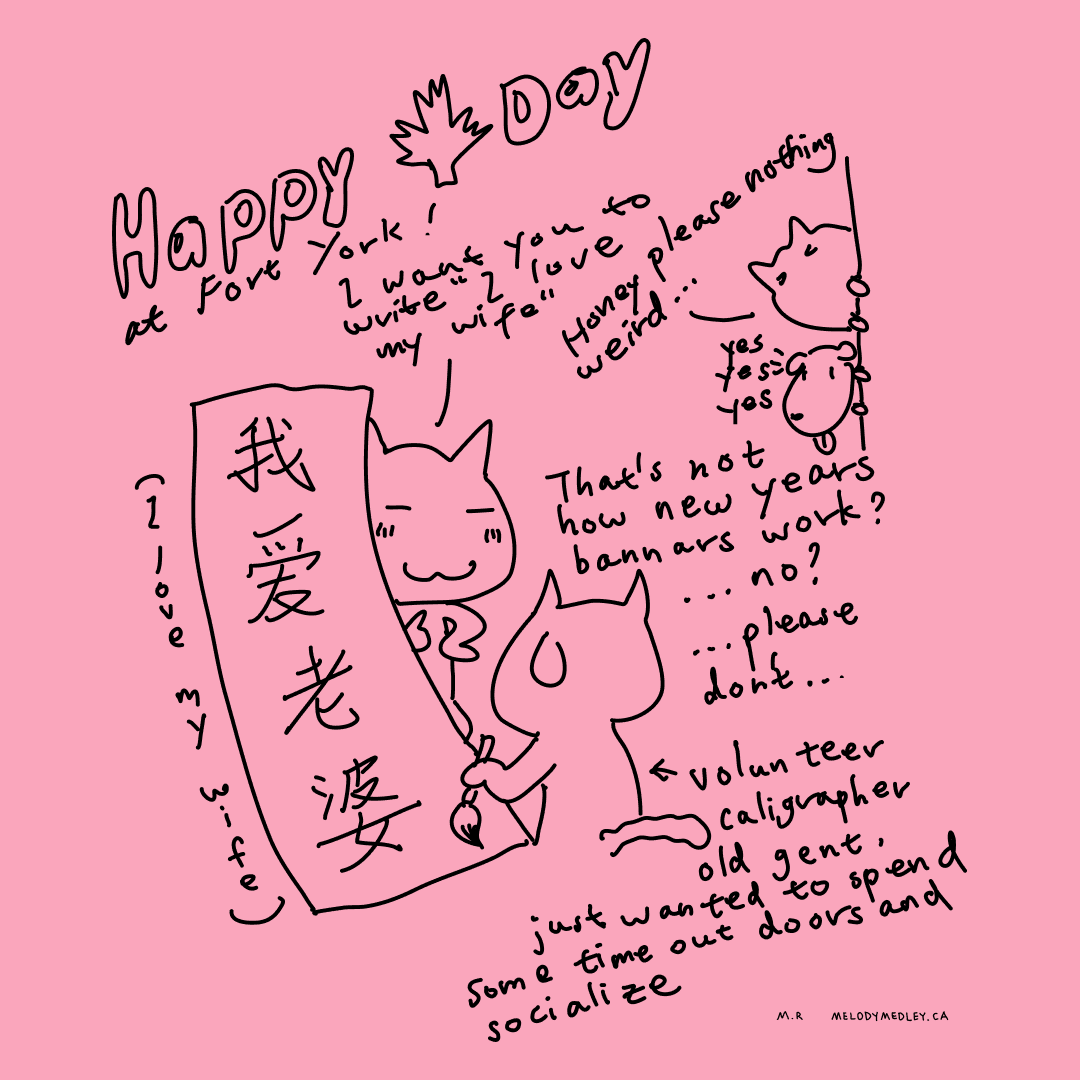 Happy Day
at Fort York!
I want you to
write "I love
my wife"
Honey please nothing
weird...
yes
yes
yes
我
爱
老
婆
(I love my wife)
That's not
how new years
bannars work?
... no?
...please
don't...
← volunteer
caligrapher
old gent.
just wanted to spend
some time out doors and
socialize
M.R MELODYMEDLEY.CA